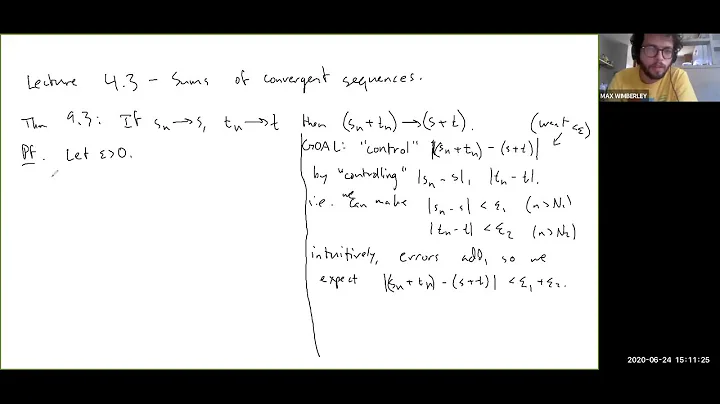 Lecture 4.3 - Sums of convergent sequences.
Thm 9.3: If sₙ → s, tₙ → t then (sₙ + tₙ) → (s + t).
(want < ε)
Pf. Let ε > 0.
GOAL: "control" |(sₙ + tₙ) - (s + t)|
by "controlling" |sₙ - s|, |tₙ - t|.
i.e. we can make |sₙ - s| < ε₁ (n > N₁)
|tₙ - t| < ε₂ (n > N₂)
intuitively, errors add, so we
expect |(sₙ + tₙ) - (s + t)| < ε₁ + ε₂.
MAX WIMBERLEY
2020-06-24 15:11:25